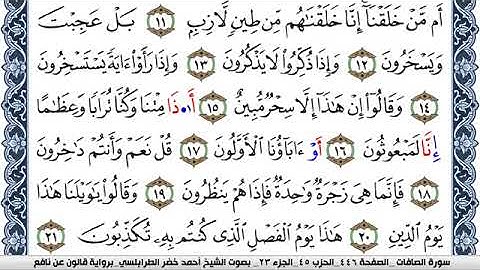 أَم مَّنْ خَلَقْنَا إِنَّا خَلَقْنَٰهُم مِّن طِينٍ لَّازِبٍ ١١ بَلْ عَجِبْتَ
وَيَسْخَرُونَ ١٢ وَإِذَا ذُكِّرُوا۟ لَا يَذْكُرُونَ ١٣ وَإِذَا رَأَوْا۟ ءَايَةً يَسْتَسْخِرُونَ
١٤ وَقَالُوٓا۟ إِنْ هَٰذَآ إِلَّا سِحْرٌ مُّبِينٌ ١٥ أَ.ذَا مِتْنَا وَكُنَّا تُرَابًا وَعِظَٰمًا
إِنَّا لَمَبْعُوثُونَ ١٦ أَوْ ءَابَآؤُنَا ٱلْأَوَّلُونَ ١٧ قُلْ نَعَمْ وَأَنتُمْ دَٰخِرُونَ
١٨ فَإِنَّمَا هِىَ زَجْرَةٌ وَٰحِدَةٌ فَإِذَا هُمْ يَنظُرُونَ ١٩ وَقَالُوا۟ يَٰوَيْلَنَا هَٰذَا
يَوْمُ ٱلدِّينِ ٢٠ هَٰذَا يَوْمُ ٱلْفَصْلِ ٱلَّذِى كُنتُم بِهِۦ تُكَذِّبُونَ ٢١
سورة الصافات _الصفحة ٤٤٦_الحزب ٤٥_الجزء ٢٣_ بصوت الشيخ أحمد خضر الطرابلسي_برواية قالون عن نافع